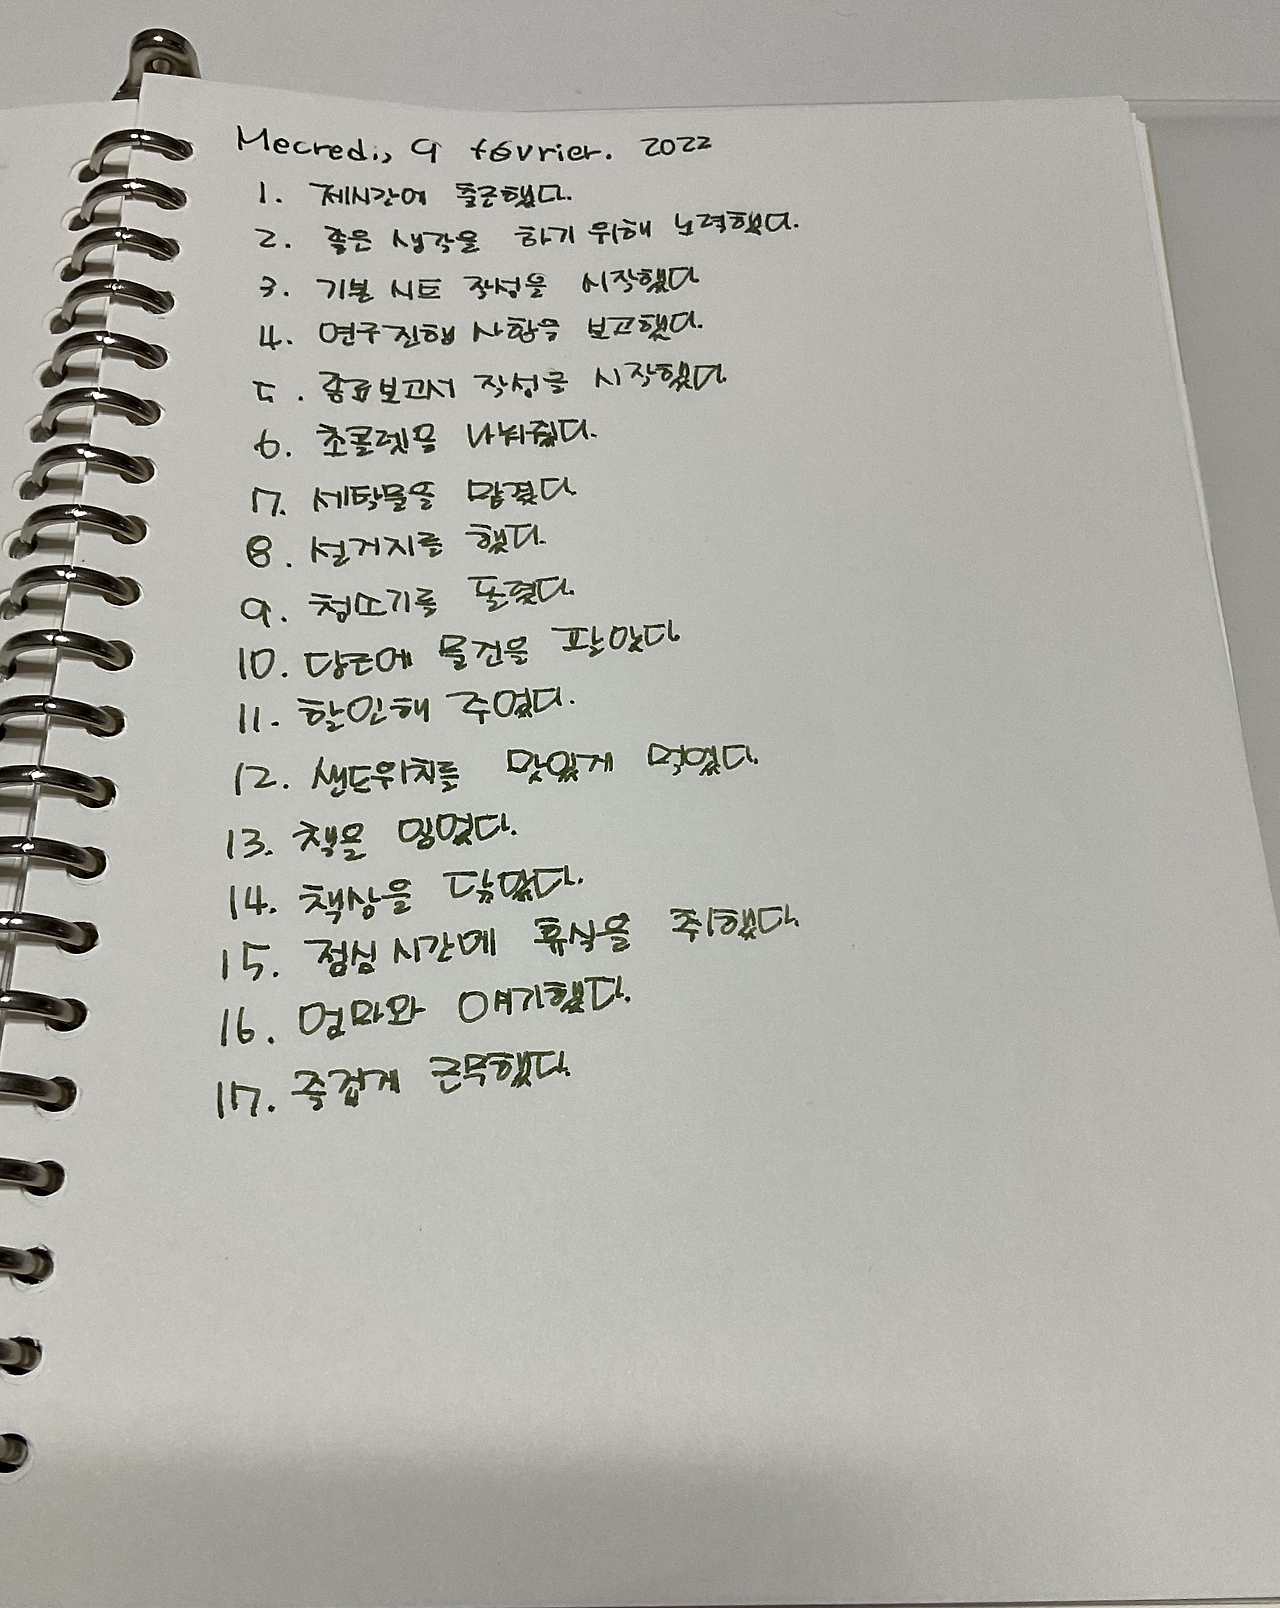 Mecredi, 9 février. 2022
1. 제시간에 출근했다.
2. 좋은 생각을 하기 위해 노력했다.
3. 기본 시트 작성을 시작했다
4. 연구진행 사항을 보고했다.
5. 종료보고서 작성을 시작했다.
6. 초콜렛을 나눠줬다.
7. 세탁물을 맡겼다.
8. 설거지를 했다.
9. 청소기를 돌렸다.
10. 당근에 물건을 팔았다
11. 할인해 주었다.
12. 샌드위치를 맛있게 먹었다.
13. 책을 읽었다.
14. 책상을 닦았다.
15. 점심 시간에 휴식을 취했다.
16. 엄마와 얘기했다.
17. 즐겁게 근무했다.